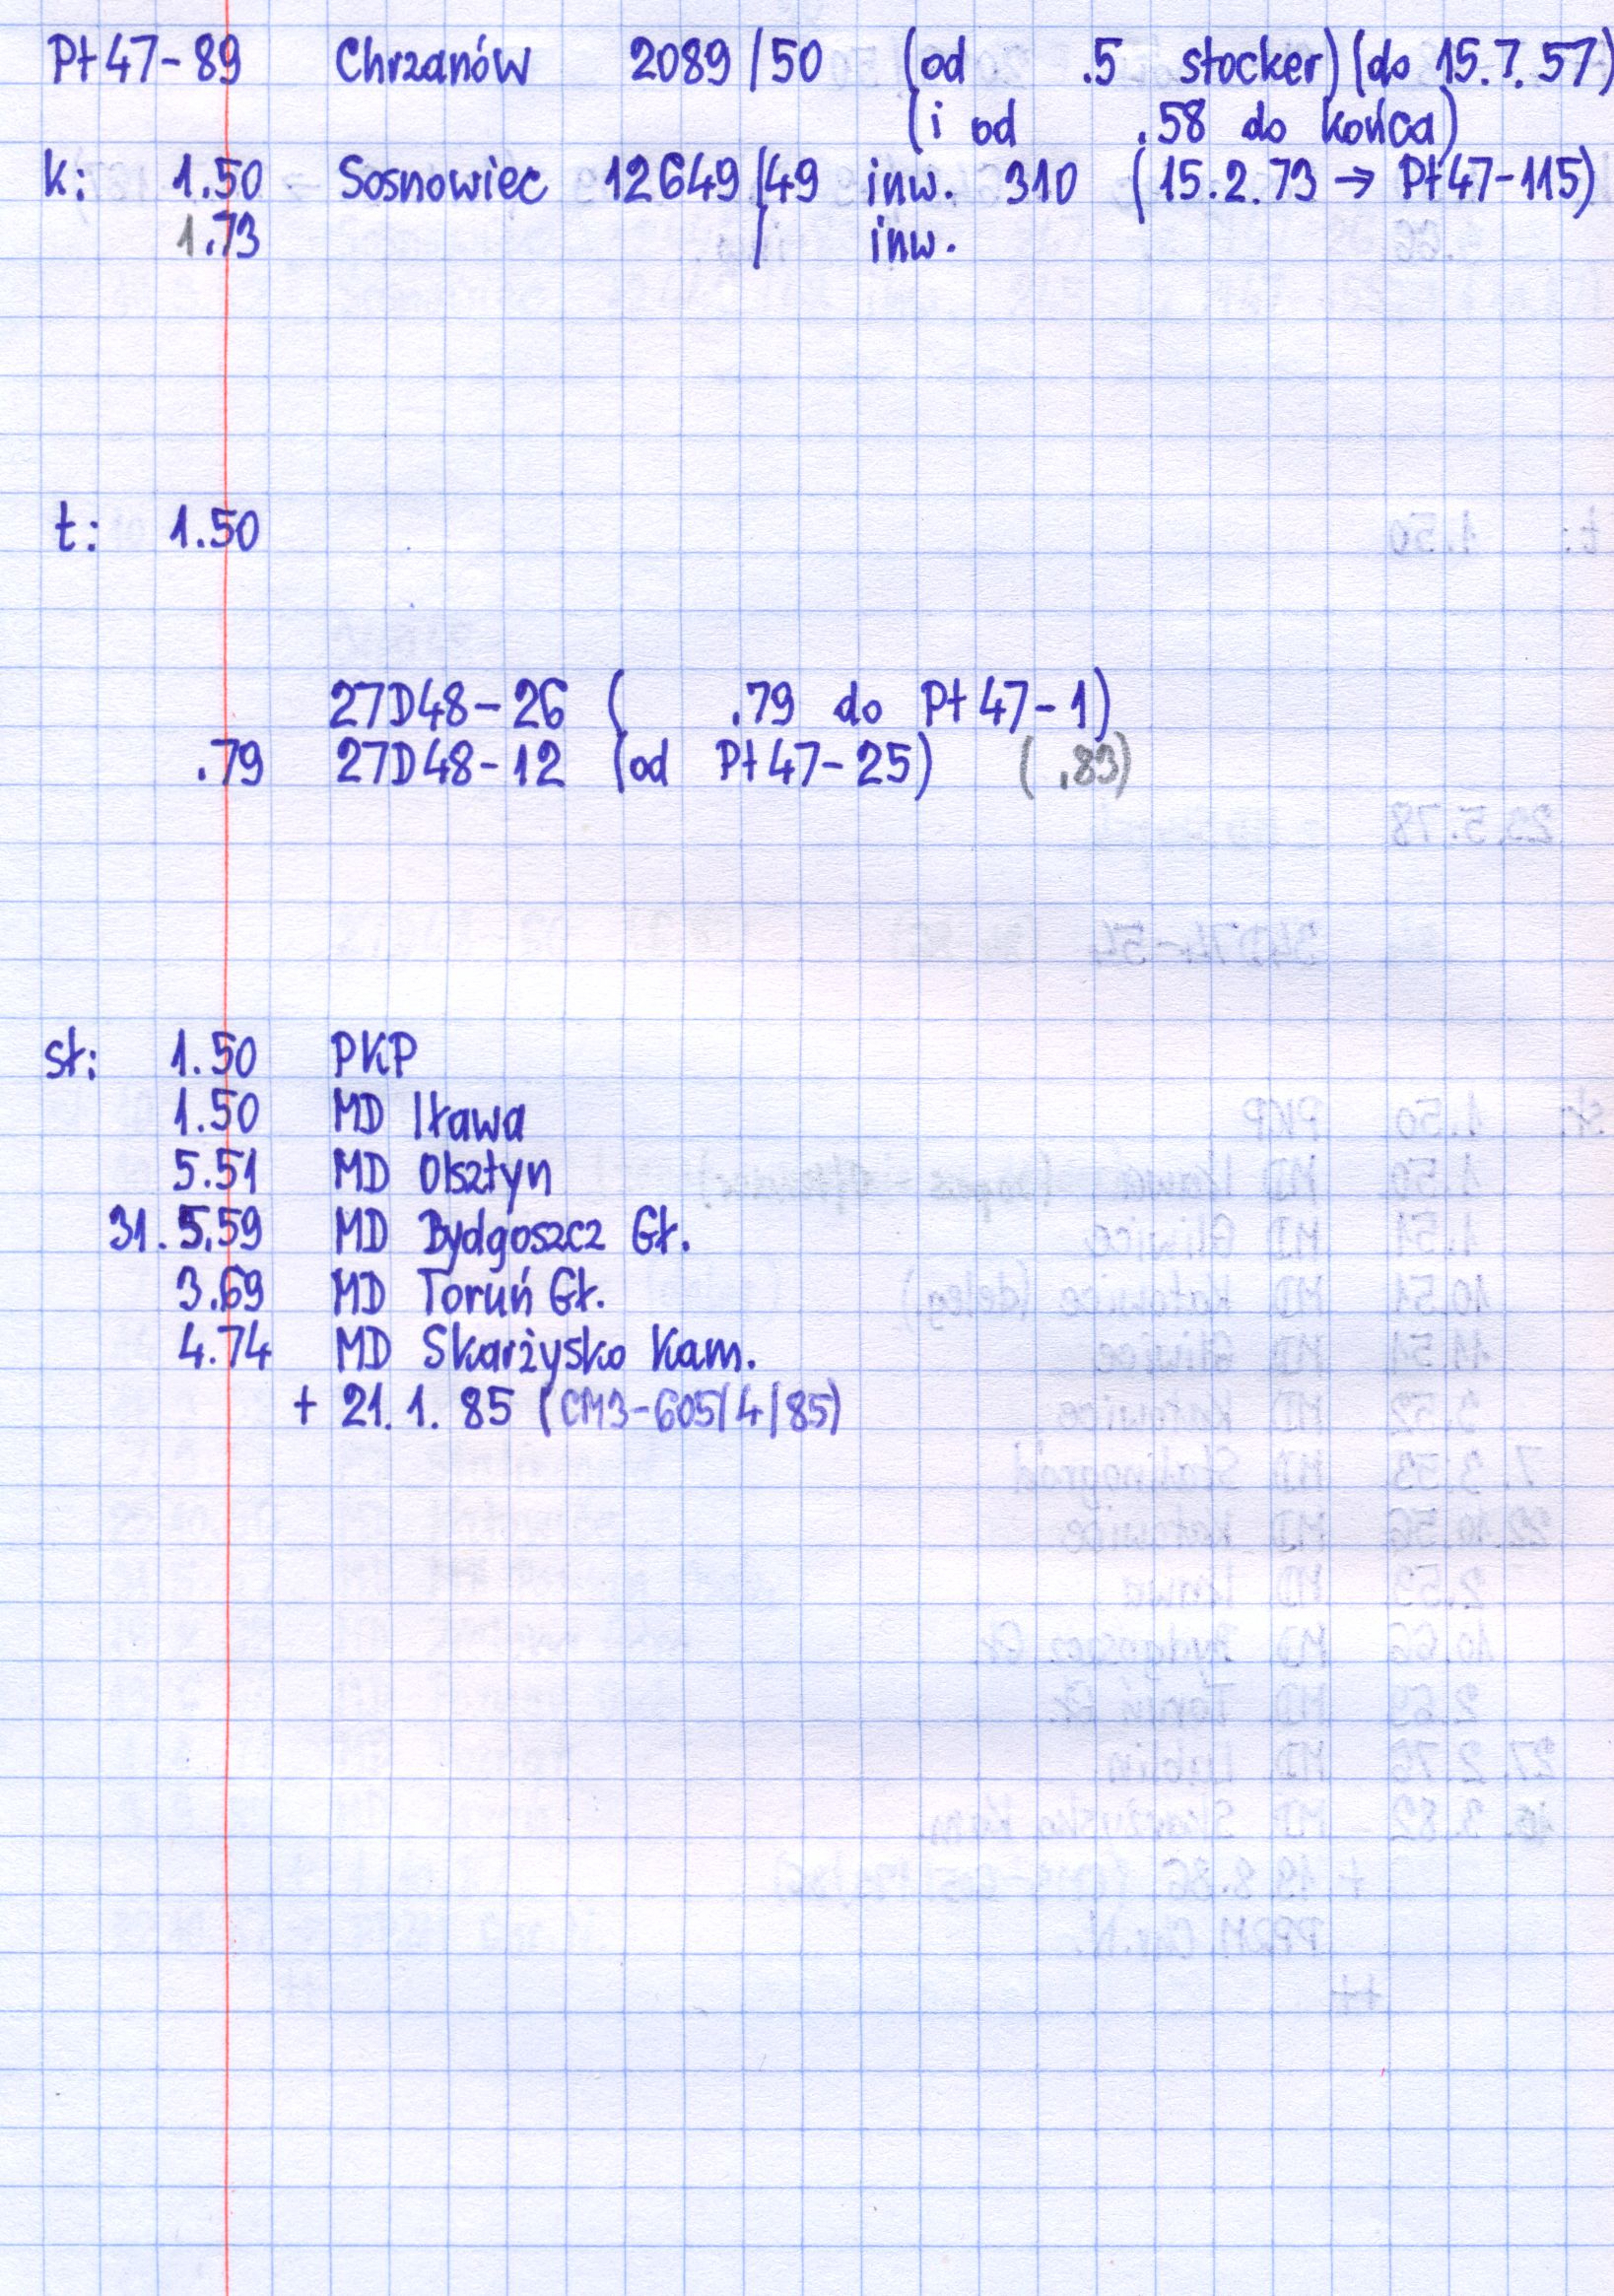 Pt47-89 Chrzanów 2089/50 (od .5 stocker) (do 15.7.57)
(i od .58 do końca)
k: 1.50 Sosnowiec 12649/49 inw. 310 (15.2.73 → Pt47-115)
1.73 / inw.
t: 1.50
27D48-26 ( .79 do Pt47-1)
.79 27D48-12 (od Pt47-25) ( .83)
sł: 1.50 PKP
1.50 MD Iława
5.51 MD Olsztyn
31.5.59 MD Bydgoszcz Gł.
3.69 MD Toruń Gł.
4.74 MD Skarżysko Kam.
+ 21.1.85 (CM3-605/4/85)